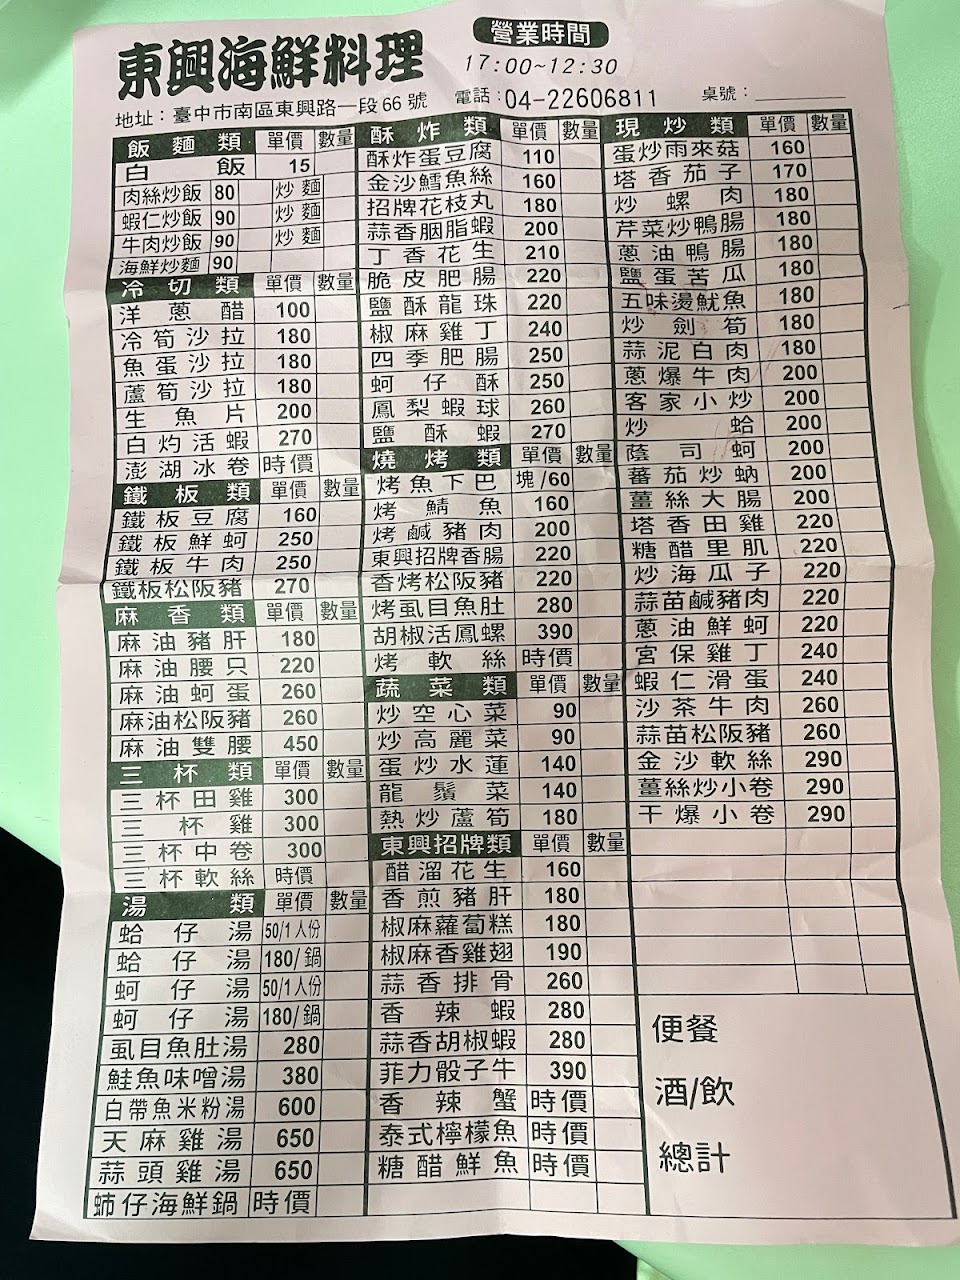 東興海鮮料理
營業時間
17:00~12:30
地址：臺中市南區東興路一段66號 電話：04-22606811 桌號：
飯麵類 單價 數量
白飯 15
肉絲炒飯 80 炒麵
蝦仁炒飯 90 炒麵
牛肉炒飯 90 炒麵
海鮮炒麵 90
冷切類 單價 數量
洋蔥醋 100
冷筍沙拉 180
魚蛋沙拉 180
蘆筍沙拉 180
生魚片 200
白灼活蝦 270
澎湖冰卷 時價
鐵板類 單價 數量
鐵板豆腐 160
鐵板鮮蚵 250
鐵板牛肉 250
鐵板松阪豬 270
麻香類 單價 數量
麻油豬肝 180
麻油腰只 220
麻油蚵蛋 260
麻油松阪豬 260
麻油雙腰 450
三杯類 單價 數量
三杯田雞 300
三杯雞 300
三杯中卷 300
三杯軟絲 時價
湯類 單價 數量
蛤仔湯 50/1人份
蛤仔湯 180/鍋
蚵仔湯 50/1人份
蚵仔湯 180/鍋
虱目魚肚湯 280
鮭魚味噌湯 380
白帶魚米粉湯 600
天麻雞湯 650
蒜頭雞湯 650
蚵仔海鮮鍋 時價
酥炸類 單價 數量
酥炸蛋豆腐 110
金沙鱈魚絲 160
招牌花枝丸 180
蒜香胭脂蝦 200
丁香花生 210
脆皮肥腸 220
鹽酥龍珠 220
椒麻雞丁 240
四季肥腸 250
蚵仔酥 250
鳳梨蝦球 260
鹽酥蝦 270
燒烤類 單價 數量
烤魚下巴 塊/60
烤鯖魚 160
烤鹹豬肉 200
東興招牌香腸 220
香烤松阪豬 220
烤虱目魚肚 280
胡椒活鳳螺 390
烤軟絲 時價
蔬菜類 單價 數量
炒空心菜 90
炒高麗菜 90
蛋炒水蓮 140
龍鬚菜 140
熱炒蘆筍 180
東興招牌類 單價 數量
醋溜花生 160
香煎豬肝 180
椒麻蘿蔔糕 180
椒麻香雞翅 190
蒜香排骨 260
香辣蝦 280
蒜香胡椒蝦 280
菲力骰子牛 390
香辣蟹 時價
泰式檸檬魚 時價
糖醋鮮魚 時價
現炒類 單價 數量
蛋炒雨來菇 160
塔香茄子 170
炒螺肉 180
芹菜炒鴨腸 180
蔥油鴨腸 180
鹽蛋苦瓜 180
五味燙魷魚 180
炒劍筍 180
蒜泥白肉 180
蔥爆牛肉 200
客家小炒 200
炒蛤 200
蔭司蚵 200
蕃茄炒蚋 200
薑絲大腸 200
塔香田雞 220
糖醋里肌 220
炒海瓜子 220
蒜苗鹹豬肉 220
蔥油鮮蚵 220
宮保雞丁 240
蝦仁滑蛋 240
沙茶牛肉 260
蒜苗松阪豬 260
金沙軟絲 290
薑絲炒小卷 290
干爆小卷 290
便餐
酒/飲
總計